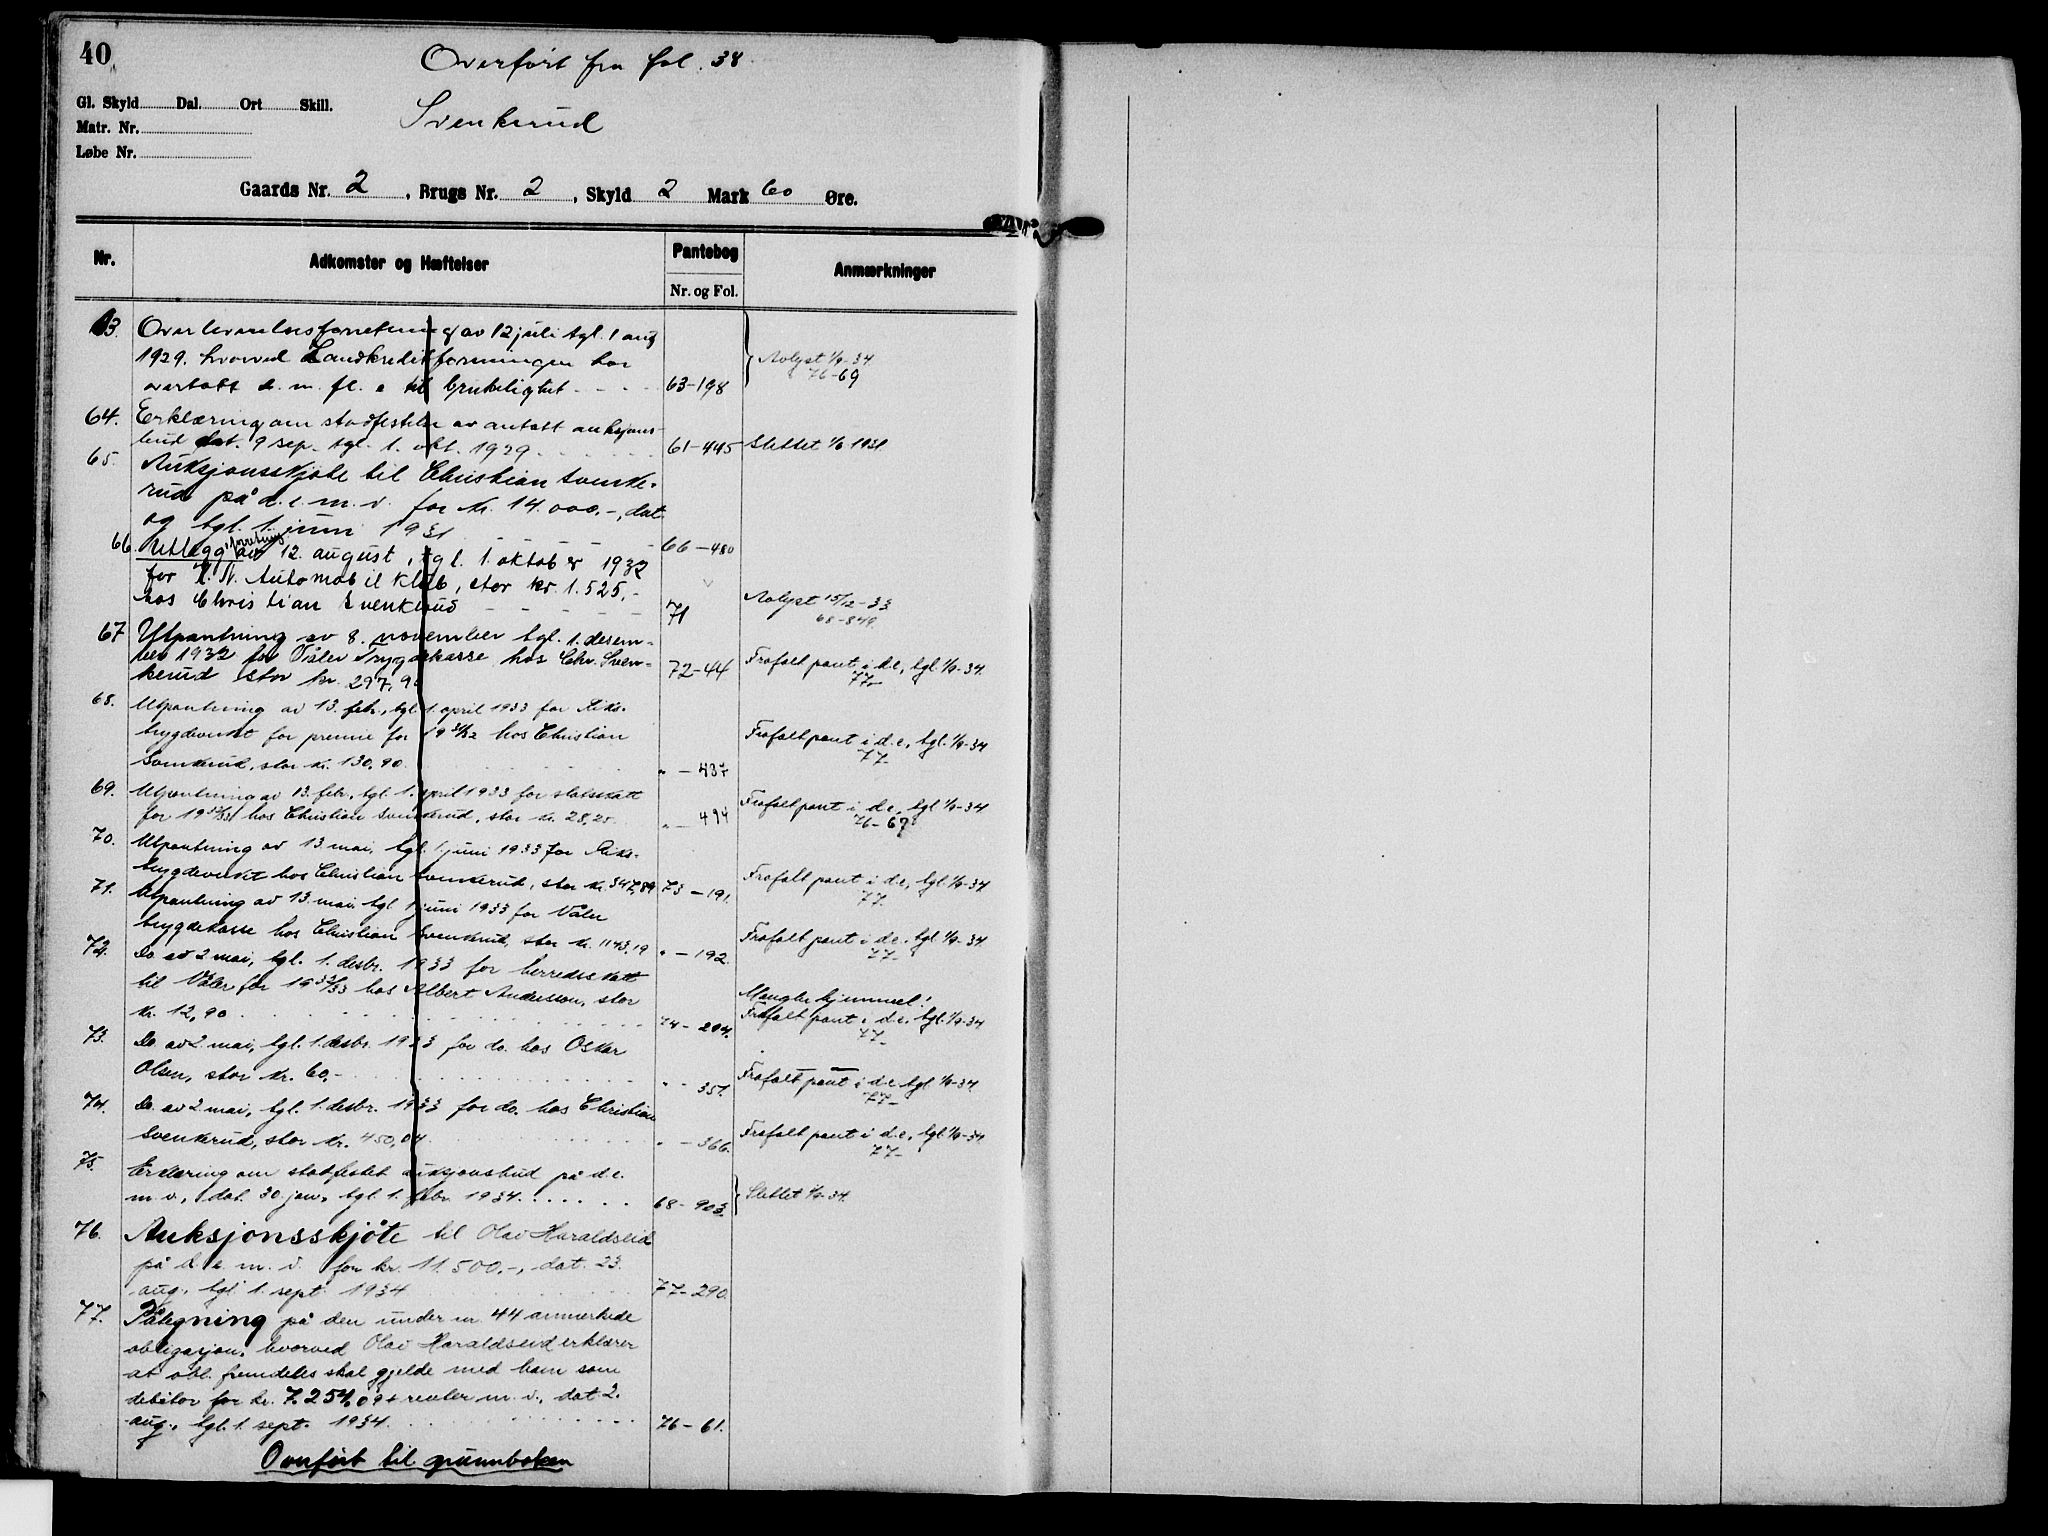 40
Overført fra fol. 38
Gl. Skyld Dal. Ort Skill.
Svenkerud
Matr. Nr.
Løbe Nr.
Gaards Nr. 2, Brugs Nr. 2, Skyld 2 Mark 60 Øre.
Nr. Adkomster og Hæftelser Pantebog Anmærkninger
Nr. og Fol.
63. Overleverelsesforretning av 12 juli tgl. 1 aug
1929. hvorved Landkreditforeningen har Avlyst 1/9-34
overtatt d. m. fl. e til brukelighet 63-198 76-69
64. Erklæring om stadfestelse av antatt auksjons-
bud dat. 9 sep. tgl. 1. okt. 1929 61-445 Slettet 1/6 1931
65. Auksjonsskjøte til Christian Svenke-
rud på d. e. m. v. for kr. 14.000.-, dat.
og tgl. 1. juni 1931 66-480
66. Utleggsforretning av 12. august, tgl. 1. oktober 1932
for K. N. Automobilklub, stor kr. 1.525,-
hos Christian Svenkerud 71 Avlyst 15/12-33
68-849.
67 Utpantning av 8. november tgl. 1. desem-
ber 1932 for Våler Trygdekasse hos Chr. Sven-
kerud stor kr. 297,90 72-44 Frafalt pant i d.e, tgl 1/9-34.
77-
68. Utpantning av 13. febr., tgl. 1. april 1933 for Riks-
trygdeverket for premie for 1931/32 hos Christian
Svenkerud, stor kr. 130,90 " - 437 Frafalt pant i d.e, tgl. 1/9-34
77-
69. Utpantning av 13. febr. tgl. 1. april 1933 for statsskatt
for 19 hos Christian Svenkerud, stor kr. 28,25 " - 494 Frafalt pant i d.e, tgl 1/9-34
76-67
70. Utpantning av 13 mai, tgl. 1. juni 1933 for Riks-
trygdeverket hos Christian Svenkerud, stor kr. 347,89 73-191. Frafalt pant i d.e, tgl 1/9-34
77.
71. Utpantning av 13. mai, tgl 1 juni 1933 for Våler
trygdekasse hos Christian Svenkerud, stor kr. 1143,19 " - 192. Frafalt pant i d.e. tgl 1/9-34.
77-
72. Do av 2 mai, tgl. 1. desbr. 1933 for herredsskatt
til Våler for 1932/33 hos Albert Andersson, stor
kr. 12,90 74-204. Mangler hjemmel!
Frafalt pant i d.e. tgl. 1/9-34
77-
73. Do. av 2. mai, tgl. 1. desbr. 1933 for do. hos Oskar
Olsen, stor kr. 60,- " - 351. Frafalt pant i d.e tgl 1/9-34
77-
74. Do. av 2 mai, tgl. 1. desbr. 1933 for do. hos Christian
Svenkerud, stor kr. 450,04 " - 366. Frafalt pant i d.e, tgl 1/9-34
77-
75. Erklæring om stadfestet auksjonsbud på d.e.
m.v., dat. 30. jan., tgl. 1. febr. 1934 68-903. Slettet 1/9-34.
76. Auksjonsskjöte til Olav Haraldseid
på d. e. m. v. for kr. 11.500,-, dat. 23.
aug., tgl 1. sept. 1934 77-290.
77. Påtegning på den under nr. 44 anmerkede
obligasjon, hvorved Olav Haraldseid erklærer
at obl. fremdeles skal gjelde med ham som
debitor for kr. 7.254,09 + renter m.v., dat 2.
aug., tgl. 1. sept. 1934. 76-61.
Overført til grunnboken